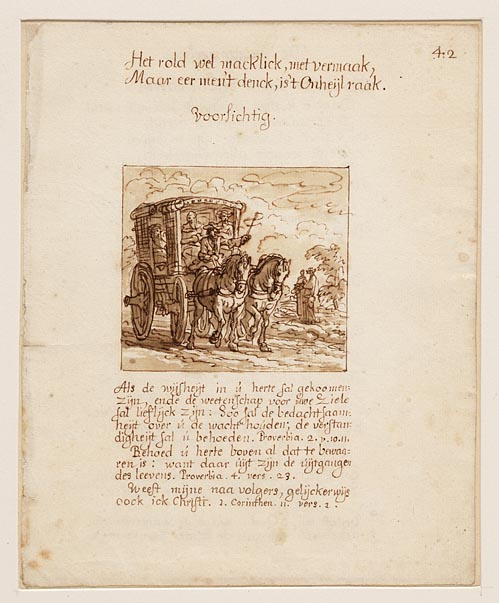 4.2
Het rold wel macklick, met vermaak,
Maar eer men't denck, is't Onheijl raak.
Voorsichtig.
Als de wijsheijt in ú herte sal gekoomen
zijn, ende de weetenschap voor uwe Ziele
sal lieflijck zijn: Soo sal de bedachtsaam-
heijt over ú de wacht houden; de verstan-
digheijt sal ú behoeden. Proverbia. 2. v. 10. 11.
Behoed ú herte boven al dat te bewaa-
ren is: want daar úijt zijn de úijtgangen
des leevens. Proverbia. 4. vers. 23.
Weest mijne naa volgers, gelijckerwijs
oock ick Christi. 1. Corinthen. 11. vers. 1.